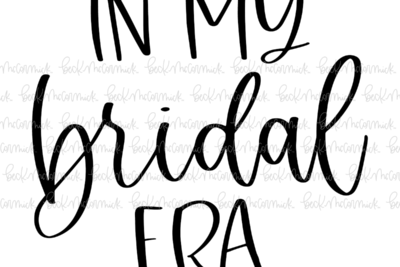 IN MY
bridal
ERA